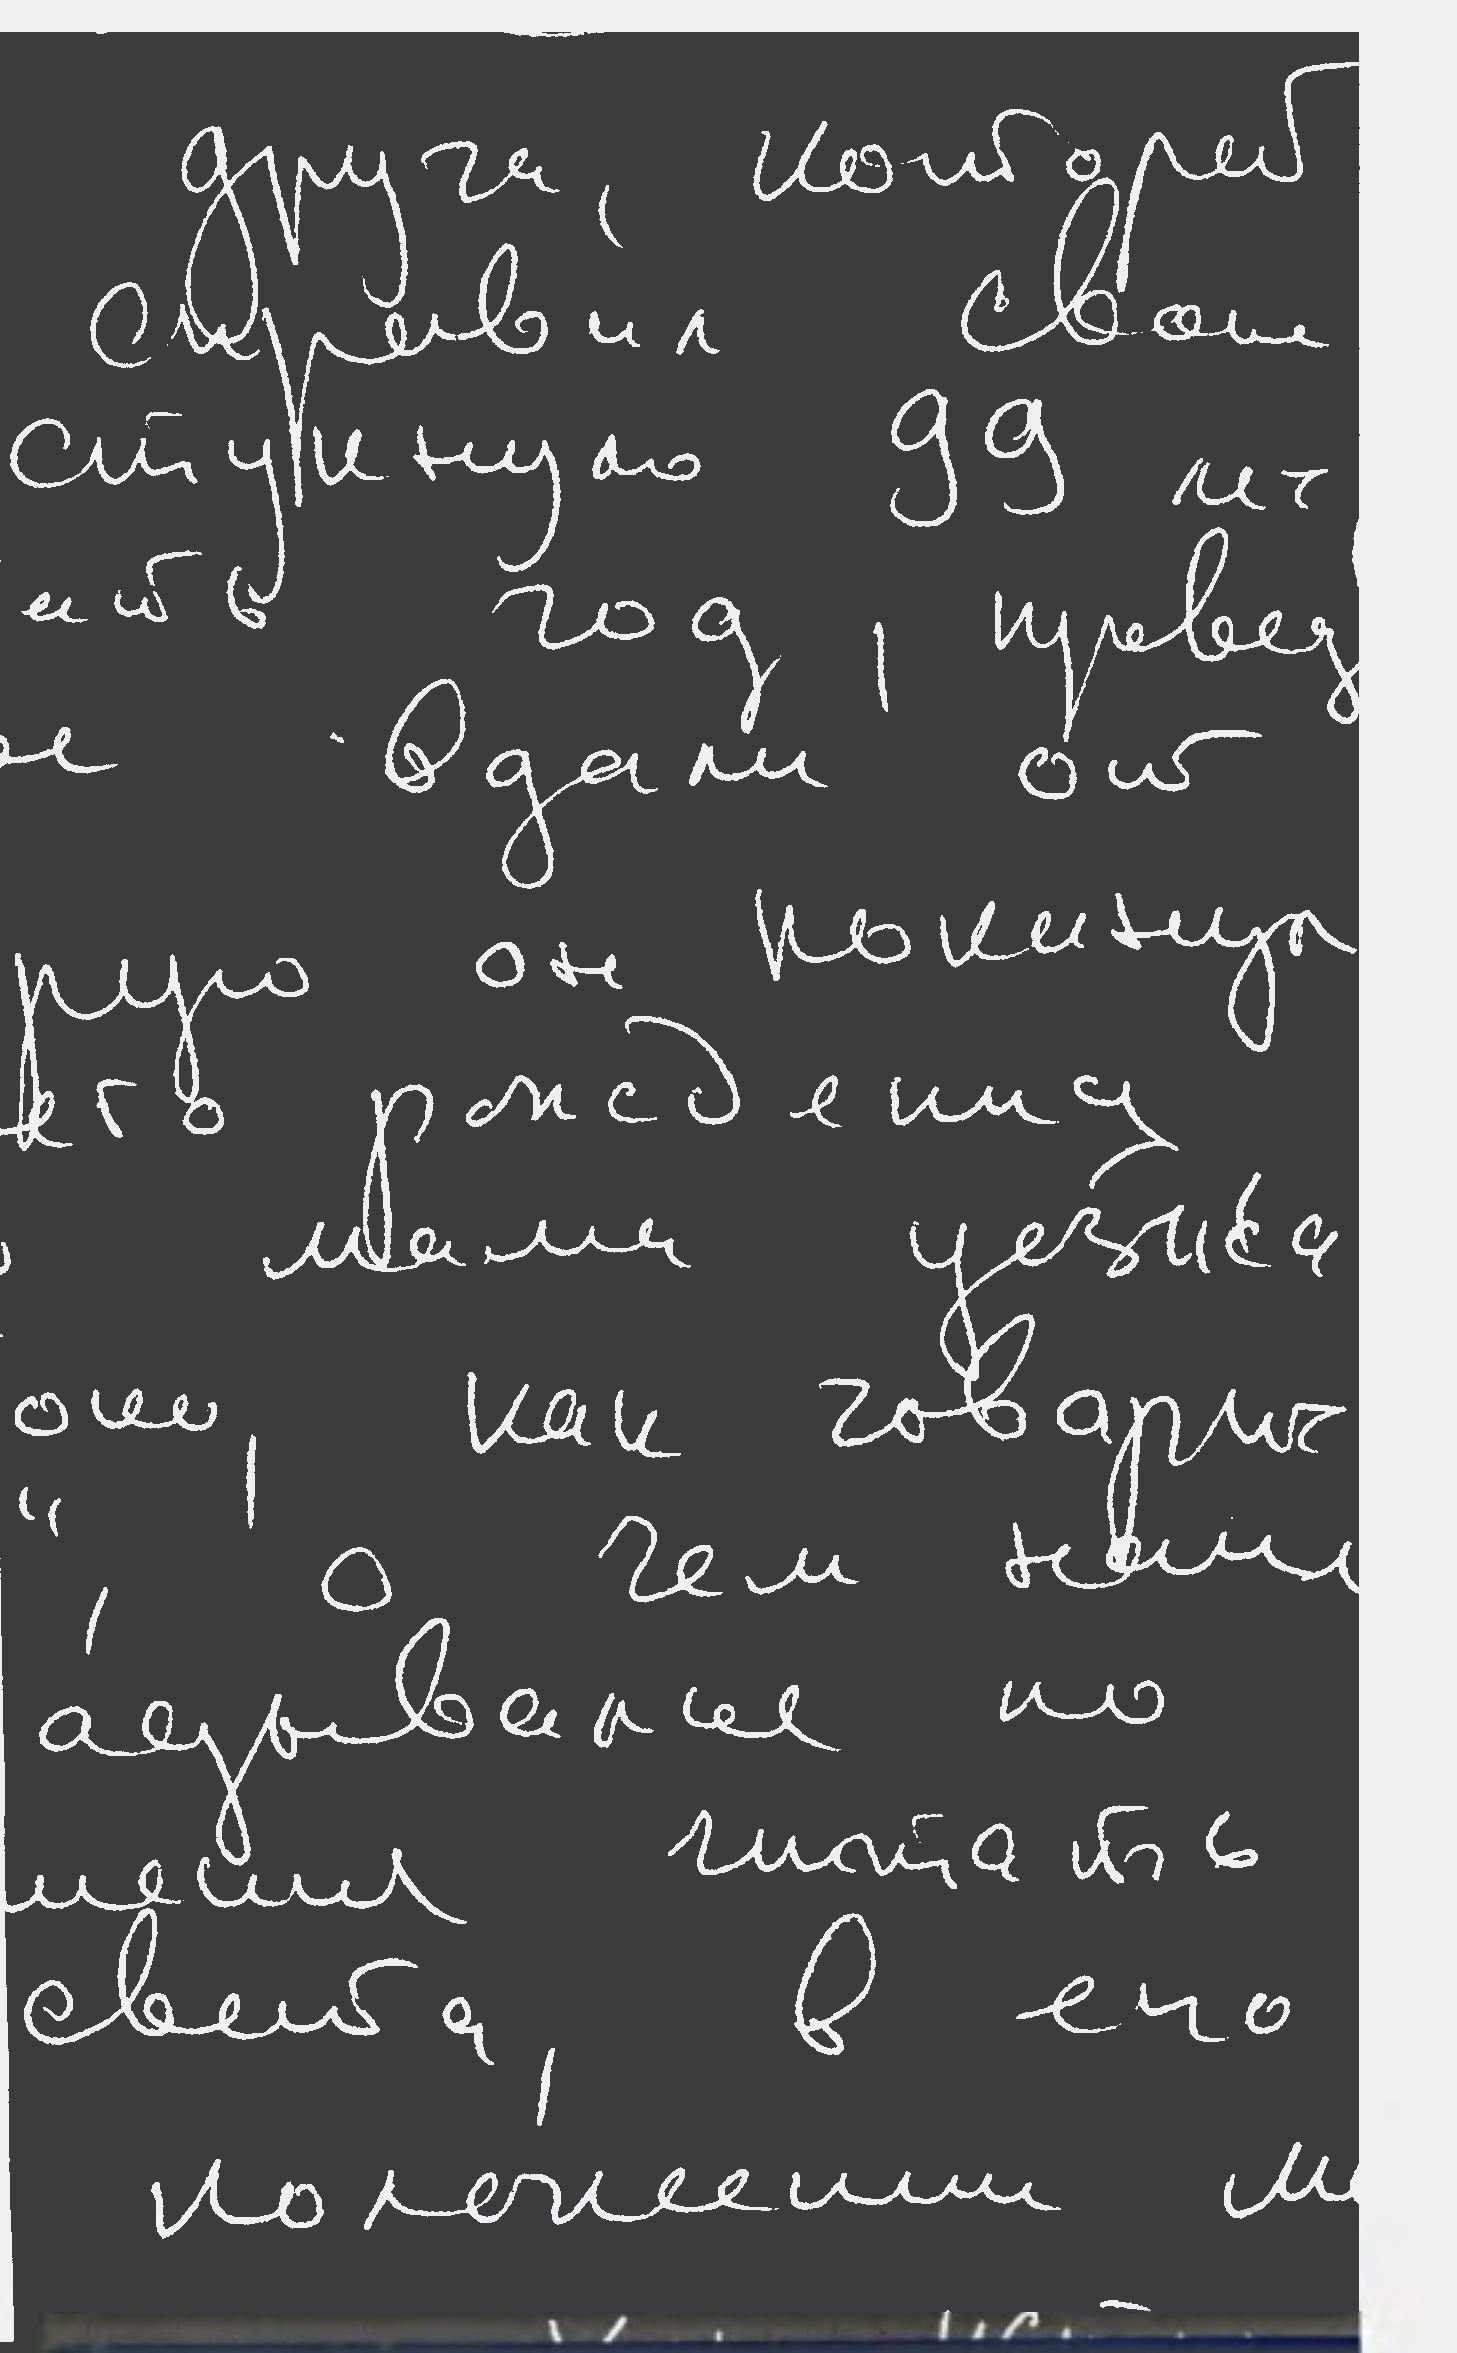 друга, которо
справил свои
стукнуло 99 ле
ать год, провед
ое вдали от
рую он покинул
его рождения
мама уезжа
они, как говорит
", о чем наш
адывание по
шении читать
света, в его
положении м